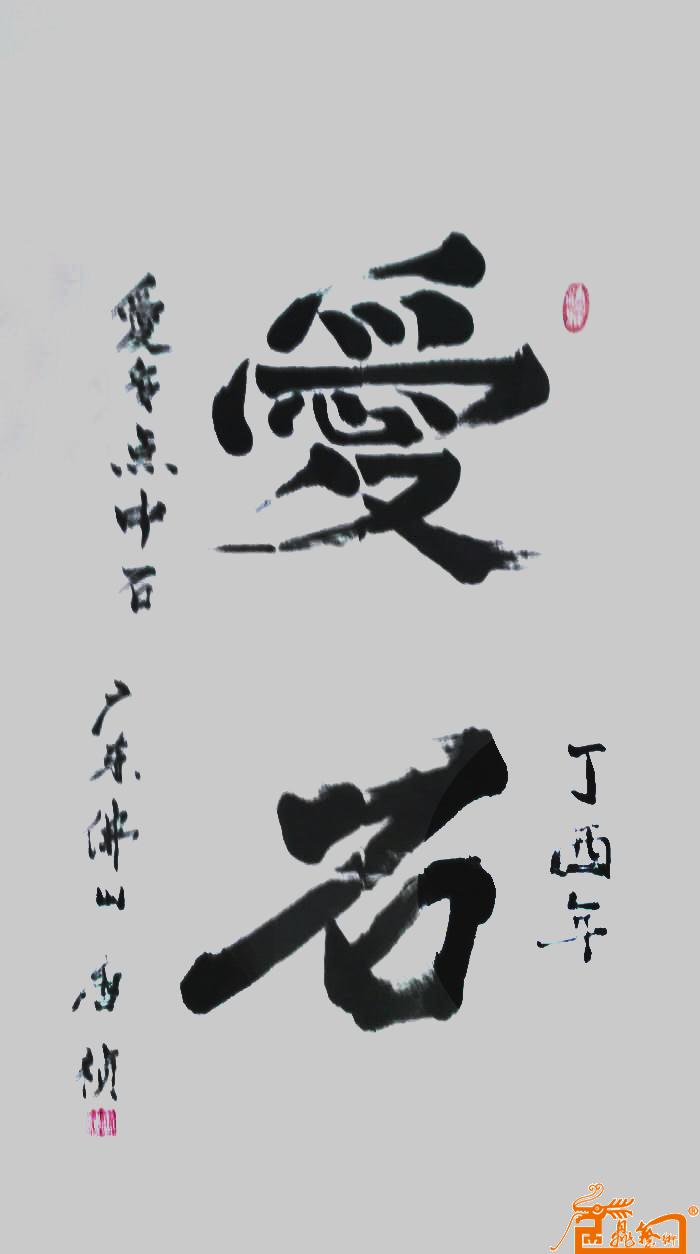 丁酉年
愛石
愛点中石 广东佛山 唐